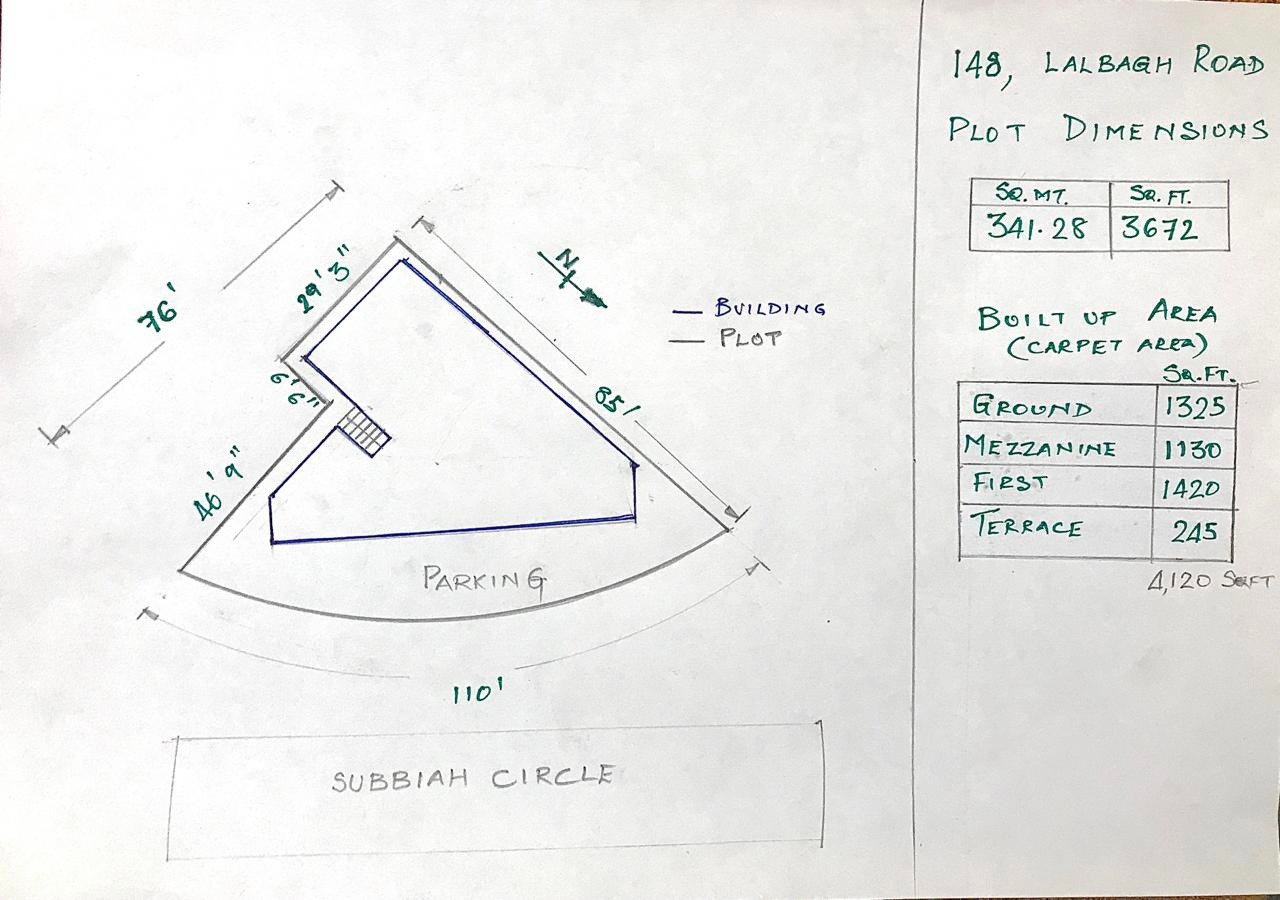 148, LALBAGH ROAD
PLOT DIMENSIONS
SQ. MT. SQ. FT.
341.28 3672
BUILT UP AREA
(CARPET AREA)
SQ. FT.
GROUND 1325
MEZZANINE 1130
FIRST 1420
TERRACE 245
4,120 SQFT
76'
29' 3"
6' 6"
46' 9"
N
85'
BUILDING
PLOT
PARKING
110'
SUBBIAH CIRCLE